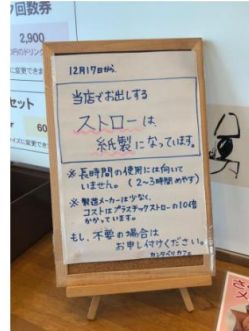 ク回数券
2,900
12月17日から
当店でお出しする
ストローは
紙製になっています。
※長時間の使用には向いて
いません。(2〜3時間めやす)
※製造メーカーは少なく、
コストはプラスチックストローの10倍
かかっています。
もし、不要の場合は
お申し付けください。
カンタベリカフェ
セット
60